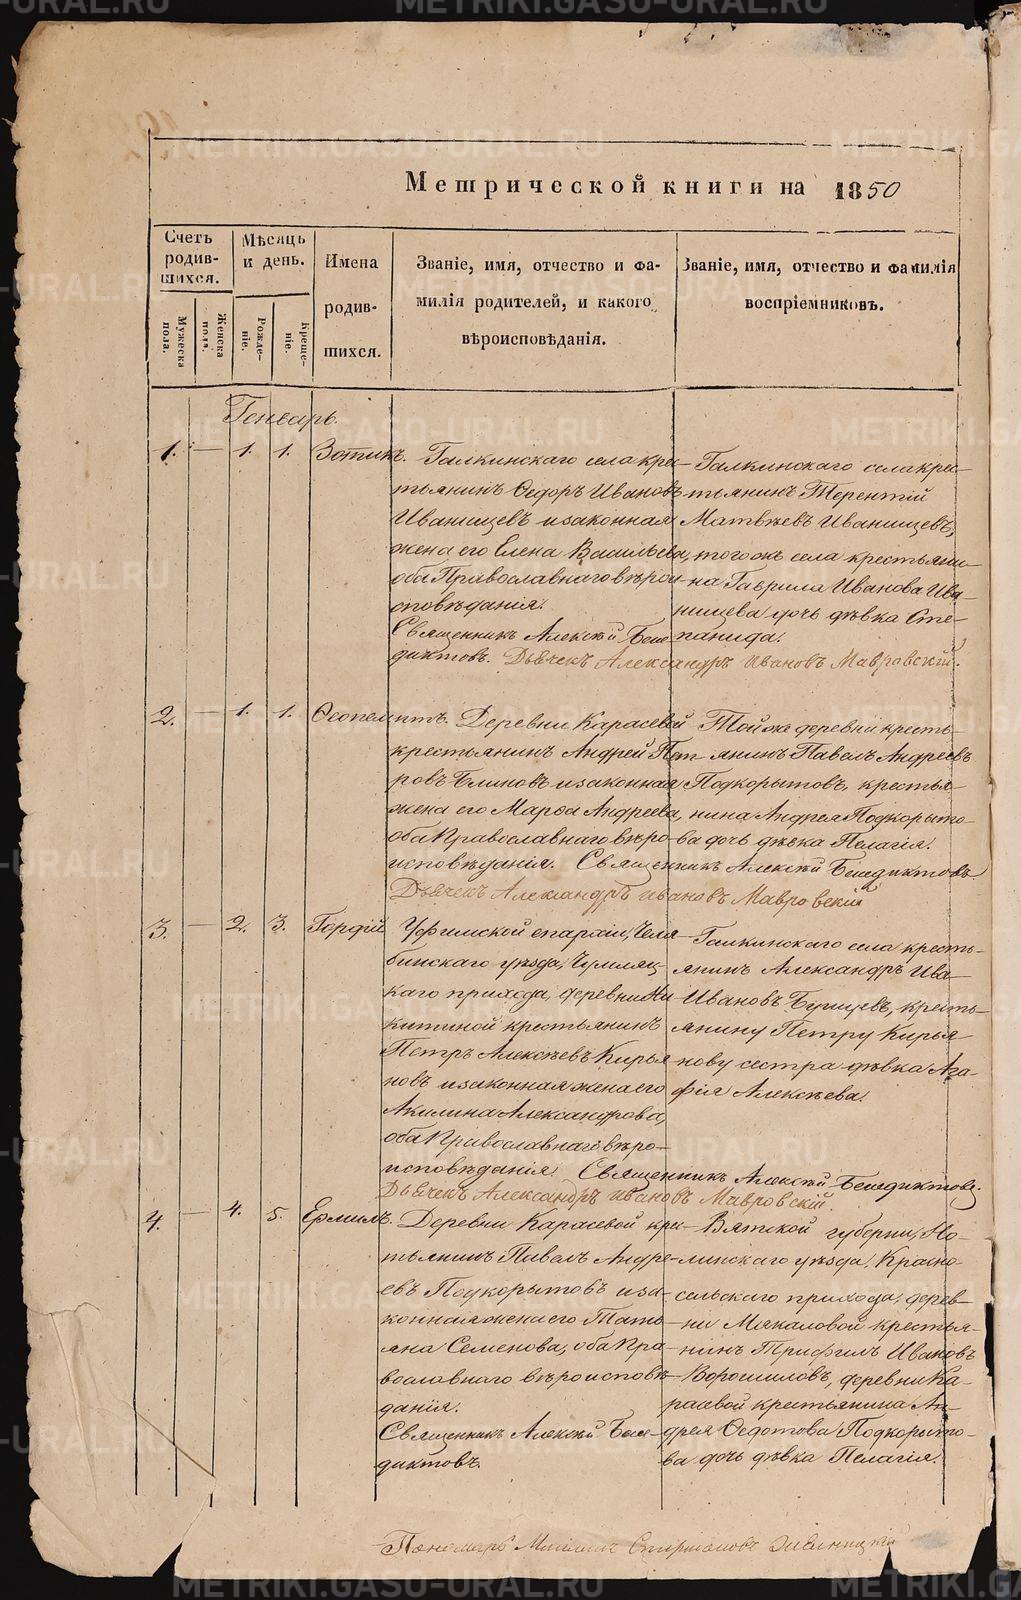 Метрической книги на 1850
Счетъ родив-шихся.
Мужеска пола.
Женска пола.
Мѣсяцъ и день.
Рожде-ніе.
Креще-ніе.
Имена родив-шихся.
Званіе, имя, отчество и фа-
милія родителей, и какого
вѣроисповѣданія.
Званіе, имя, отчество и фамилія
воспріемниковъ.
Генварь.
1. — 1. 1. Зотикъ.
Галкинскаго села кре-
стьянинъ Ѳедоръ Ивановъ
Иванищевъ и законная
жена его Елена Васильева,
оба Православнаго вѣрои-
сповѣданія.
Священникъ Алексѣй Бене-
диктовъ. Дьячекъ Александръ Ивановъ Мавровскій.
Галкинскаго села крес-
тьянинъ Терентій
Матвѣевъ Иванищевъ,
тогожъ села крестьяни-
на Гаврила Иванова Ива-
нищева дочь дѣвка Сте-
панида.
2. — 1. 1. Ѳеопемптъ.
Деревни Карасевой
крестьянинъ Андрей Пет-
ровъ Блиновъ и законная
жена его Марѳа Андреева,
оба Православнаго вѣро-
исповѣданія. Священникъ Алексѣй Бенедиктовъ.
Дьячекъ Александръ Ивановъ Мавровскій
Той же деревни кресть-
янинъ Павелъ Андреевъ
Подкорытовъ, крестья-
нина Андрея Подкорыто-
ва дочь дѣвка Пелагія.
3. — 2. 3. Гордій
Уфимской епархіи, Челя-
бинскаго уѣзда, Чумляц-
каго прихода, деревни Ни-
китиной крестьянинъ
Петръ Алексѣевъ Кирья-
новъ и законная жена его
Акилина Александрова,
оба Православнаго вѣро-
исповѣданія. Священникъ Алексѣй Бенедиктовъ.
Дьячекъ Александръ Ивановъ Мавровскій.
Галкинскаго села кресть-
янинъ Александръ Ива-
Ивановъ крѣсть-
янину Петру Кирья-
нову сестра дѣвка Ага-
фія Алексѣева.
4. — 4. 5. Ермилъ.
Деревни Карасевой кре-
стьянинъ Павелъ Андре-
евъ Подкорытовъ и за-
конная жена его Тать-
яна Семенова, оба Пра-
вославнаго вѣроисповѣ-
данія.
Священникъ Алексѣй Бене-
диктовъ.
Вятской губерніи, Но-
линскаго уѣзда, Красно-
сельскаго прихода, дерев-
ни Мякаловой крестья-
нинъ Трифилъ Ивановъ
Ворошиловъ, деревни Ка-
расевой крестьянина Ан-
дрея Ѳедотова Подкорыто-
ва дочь дѣвка Пелагія.
Пономарь
METRIKI.GASO-URAL.RU